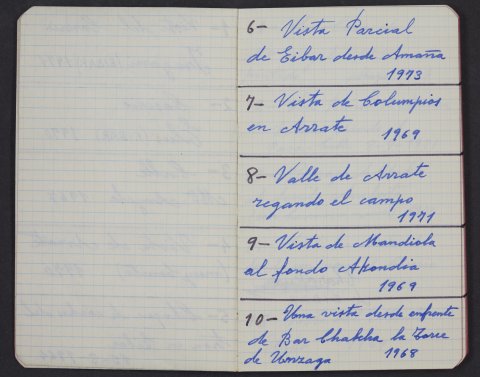 6- Vista Parcial
de Eibar desde Amaña
1973
7- Vista de Columpios
en Arrate
1969
8- Valle de Arrate
regando el campo
1971
9- Vista de Mandiola
al fondo Akondia
1969
10- Una vista desde enfrente
de Bar Chalcha la Torre
de Unzaga 1968